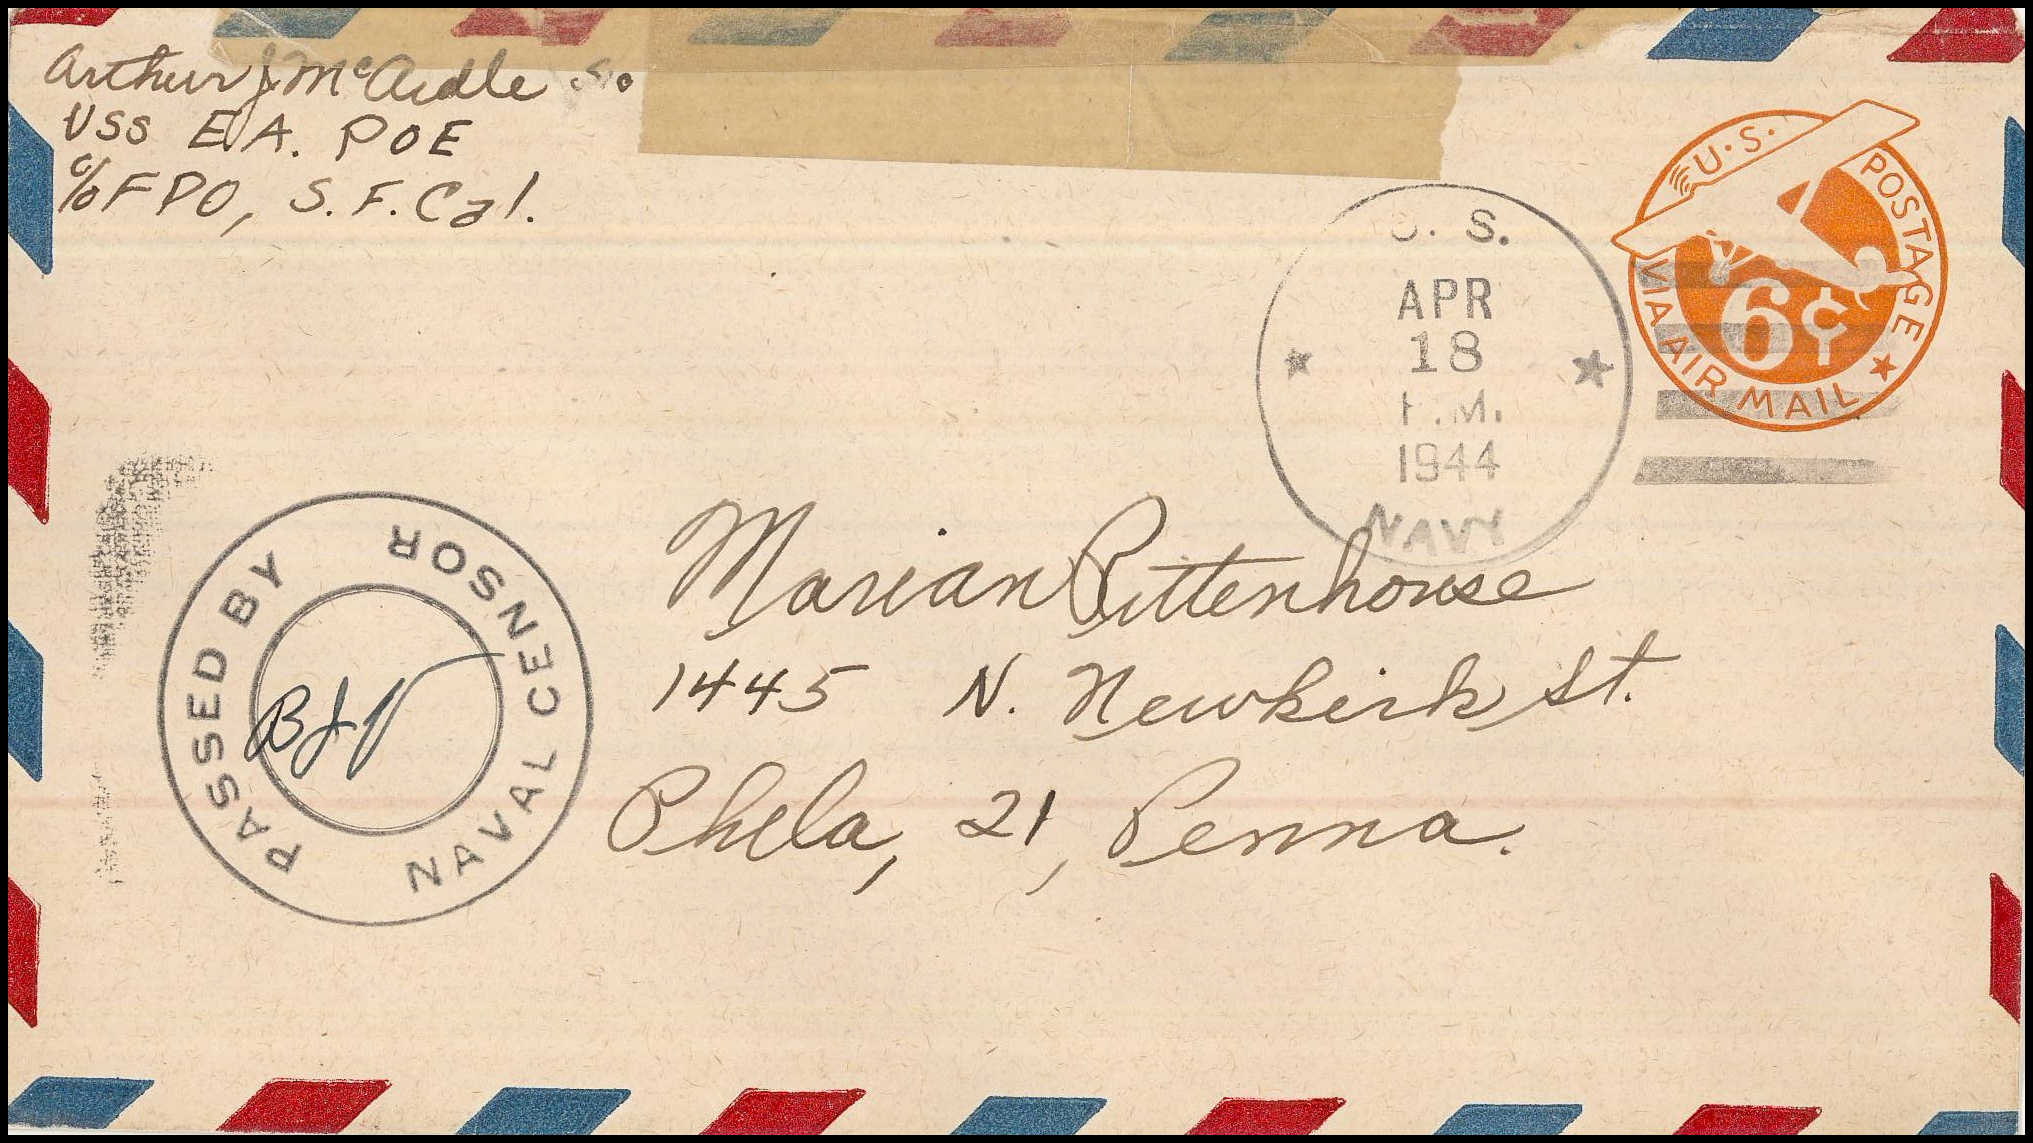 Arthur J McArdle
USS E.A. POE
c/o FPO, S.F. Cal.
U.S. POSTAGE
6¢
VIA AIR MAIL
U. S.
APR
18
P.M.
1944
NAVY
PASSED BY
NAVAL CENSOR
Marian Rittenhouse
1445 N. Newkirk St.
Phila, 21, Penna.